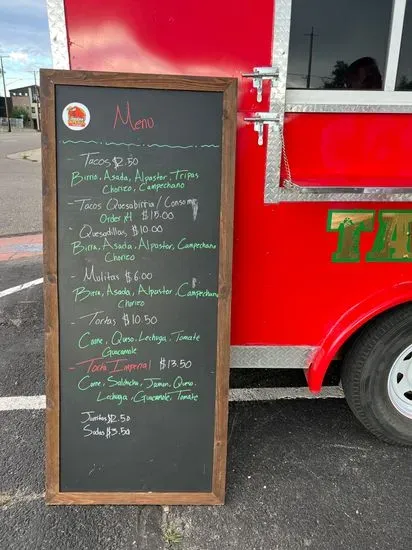 Menu
- Tacos $2.50
Birria, Asada, Alpastor, Tripas
Chorico, Campechano
- Tacos Quesabirria / Consome
Order #4 $15.00
- Quesadillas $10.00
Birra, Asada, Alpastor, Campechano
Chorico
- Mulitas $6.00
Birra, Asada, Alpastor, Campechano
Chorico
- Tortas $10.50
Carne, Queso, Lechuga, Tomate
Guacamole
- Torta Imperial $13.50
Carne, Salchicha, Jamon, Queso,
Lechuga, Guacamole, Tomate
Jarritos $2.50
Sodas $3.50
TA